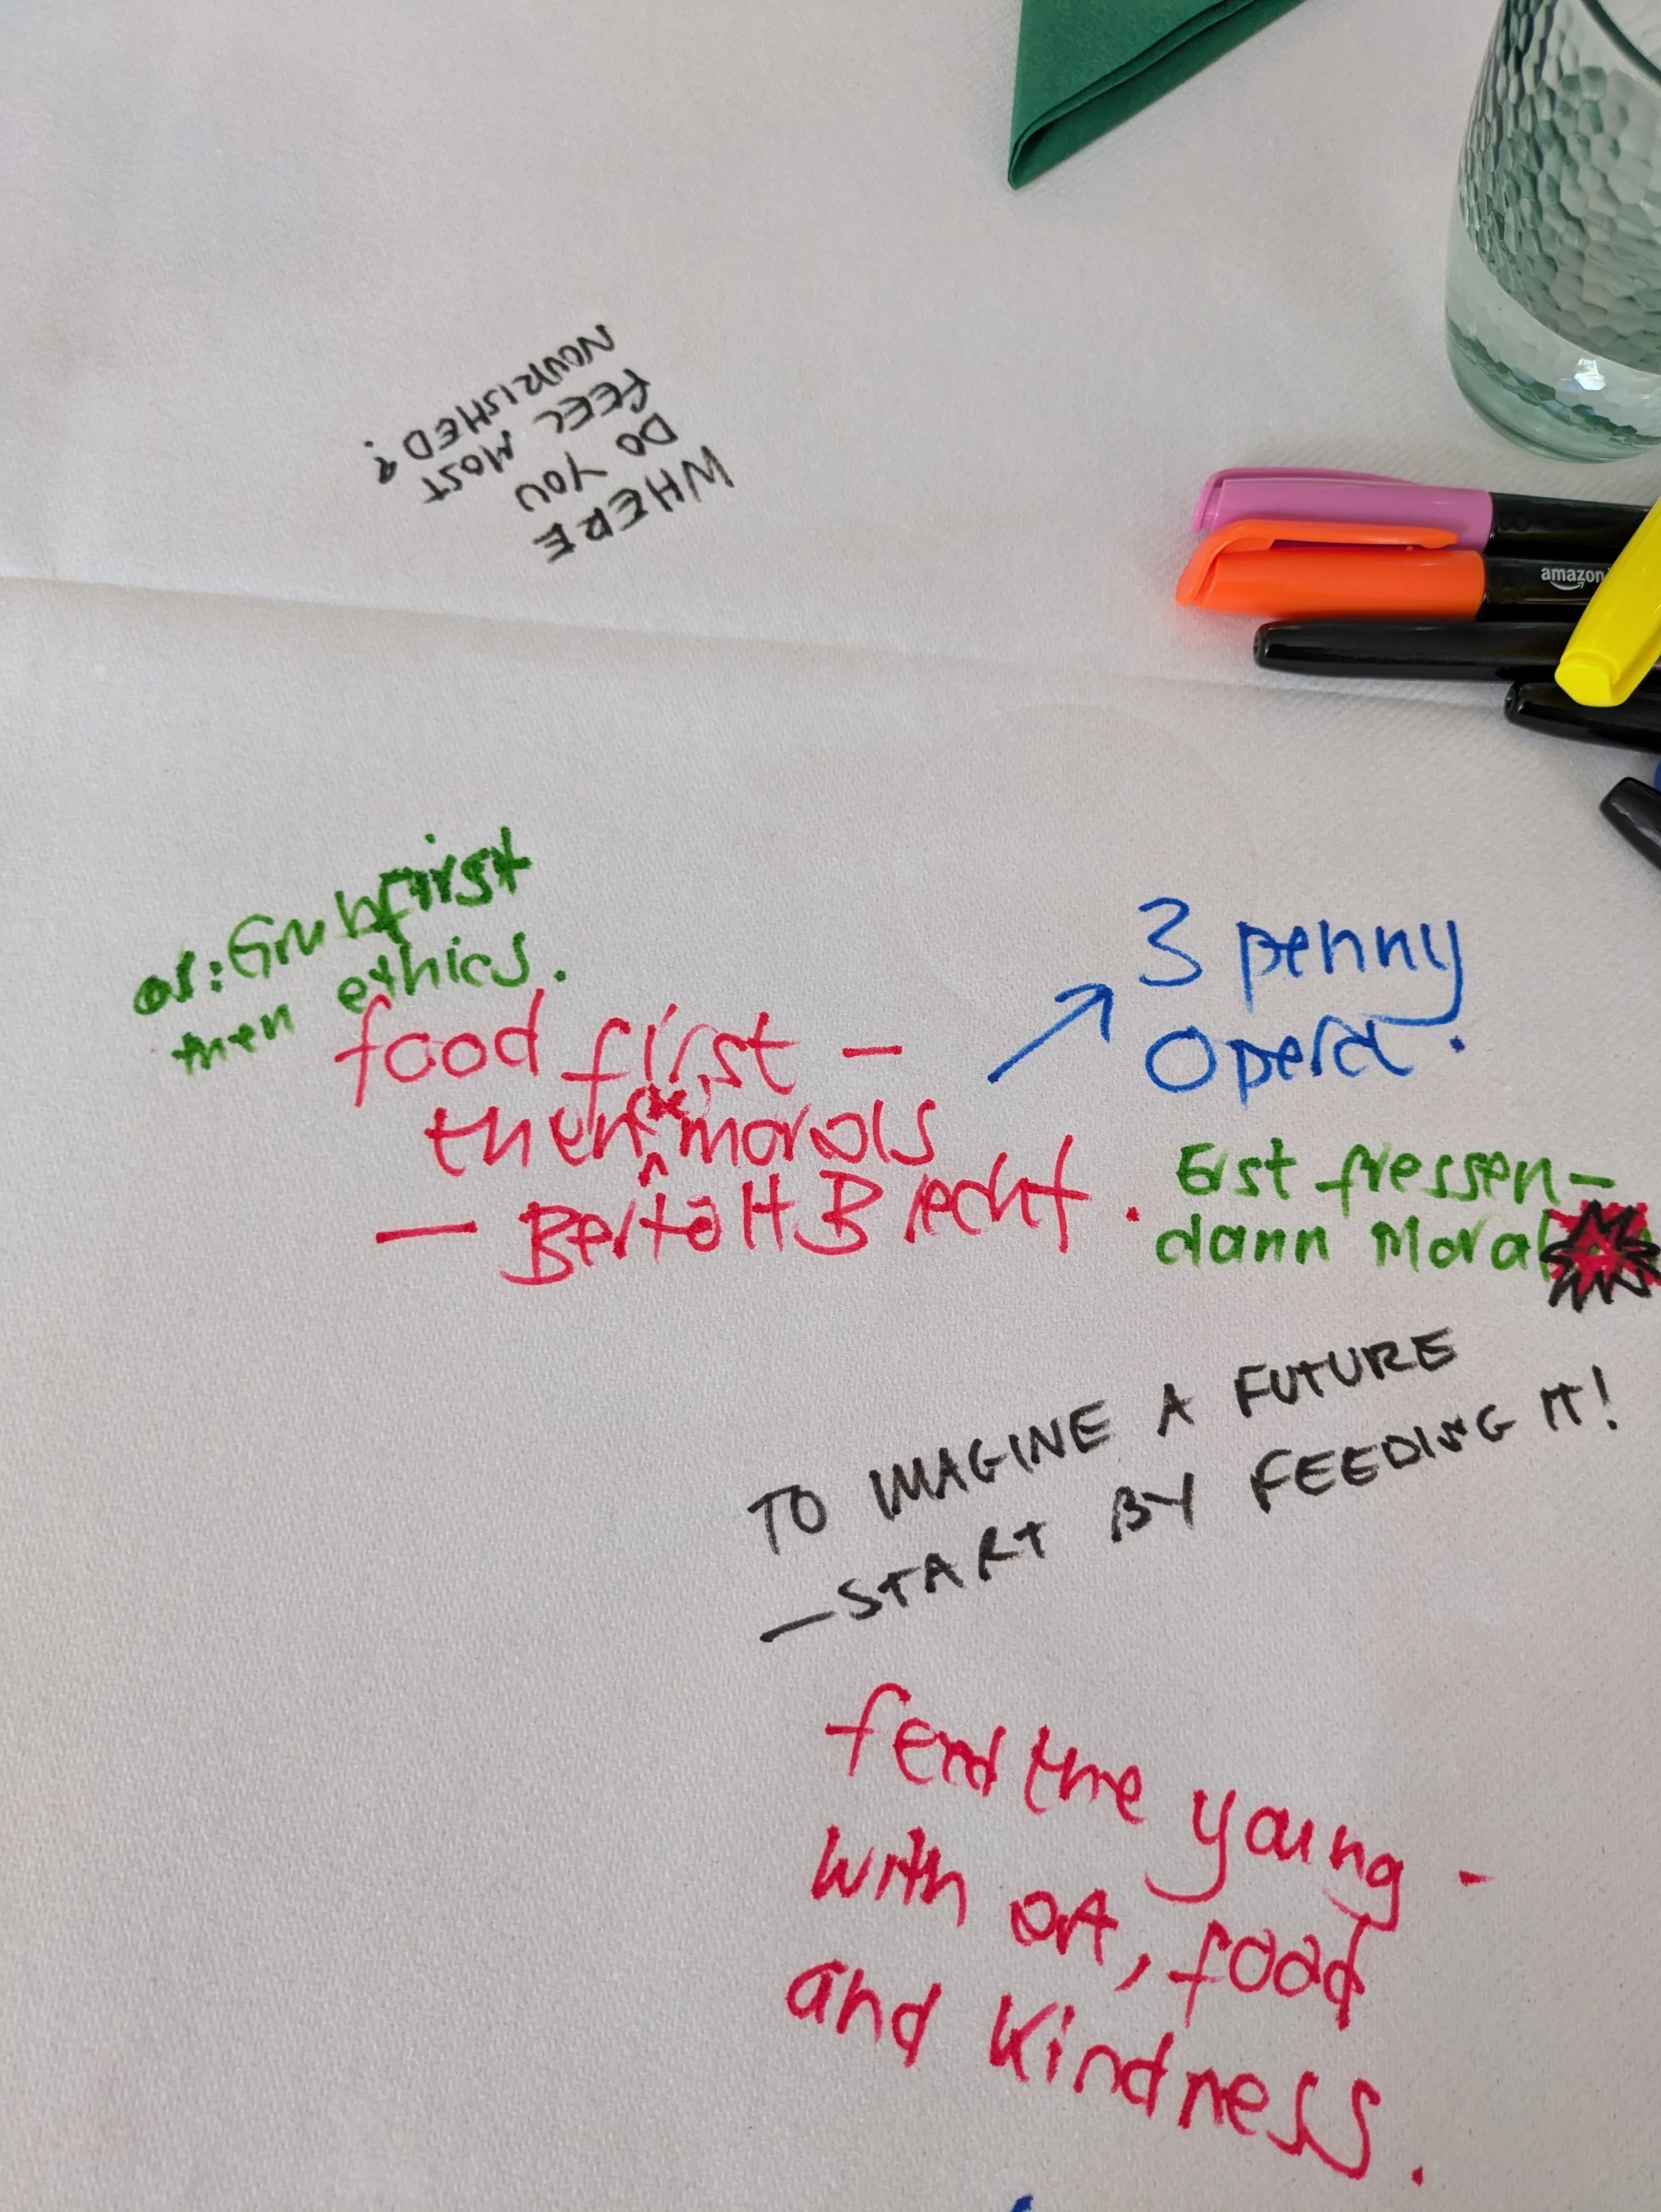 WHERE
DO YOU
FEEL MOST
NOURISHED?
amazon
or: Grub first
then ethics.
food first —
then morals
— Bertolt Brecht.
3 penny
Opera.
Erst fressen —
dann Moral
TO IMAGINE A FUTURE
— START BY FEEDING IT!
feed the young -
with art, food
and kindness.